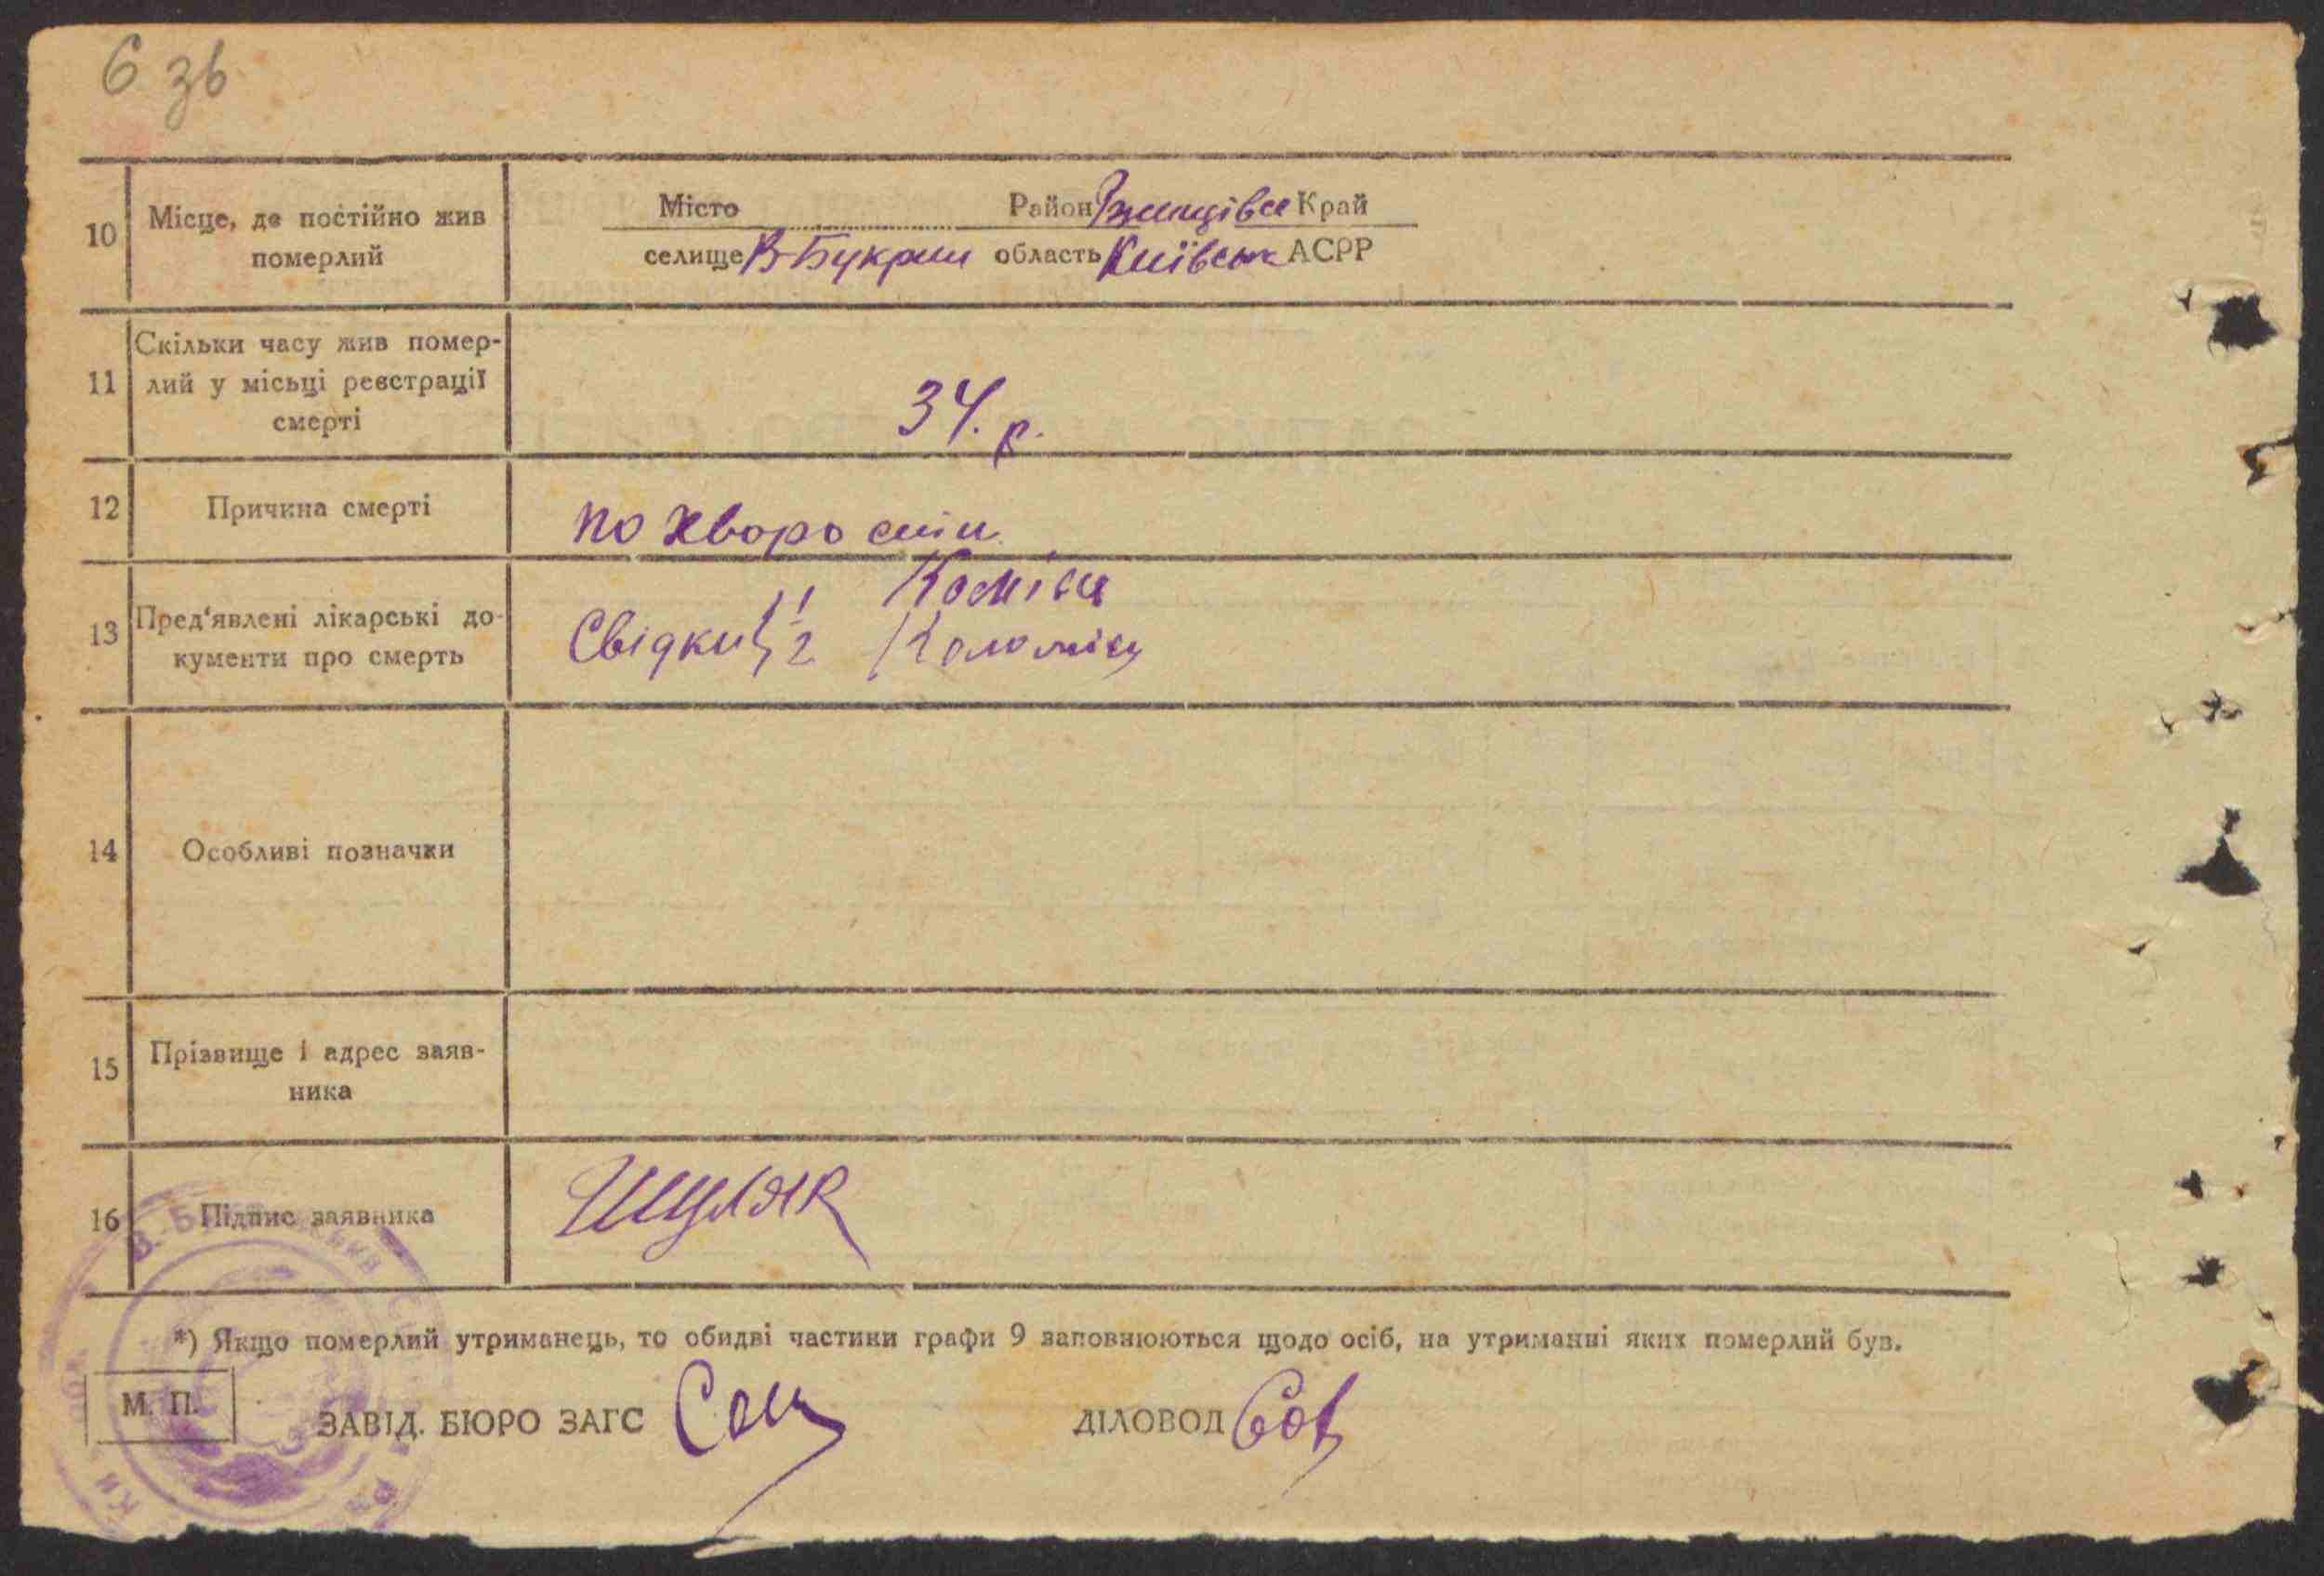 6 зв
10
Місце, де постійно жив
померлий
Місто Район Ржищівсь Край
селище В-Букрин область Київськ АСРР
11
Скільки часу жив помер-
лий у місьці реєстрації
смерті
34. р.
12
Причина смерті
по хворости
13
Пред'явлені лікарські до-
кументи про смерть
Свідки 1
2 Коломієц
14
Особливі позначки
15
Прізвище і адрес заяв-
ника
16
Підпис заявника
Шуляк
*) Якщо померлий утриманець, то обидві частини графи 9 заповнюються щодо осіб, на утриманні яких померлий був.
М. П.
ЗАВІД. БЮРО ЗАГС
ДІЛОВОД